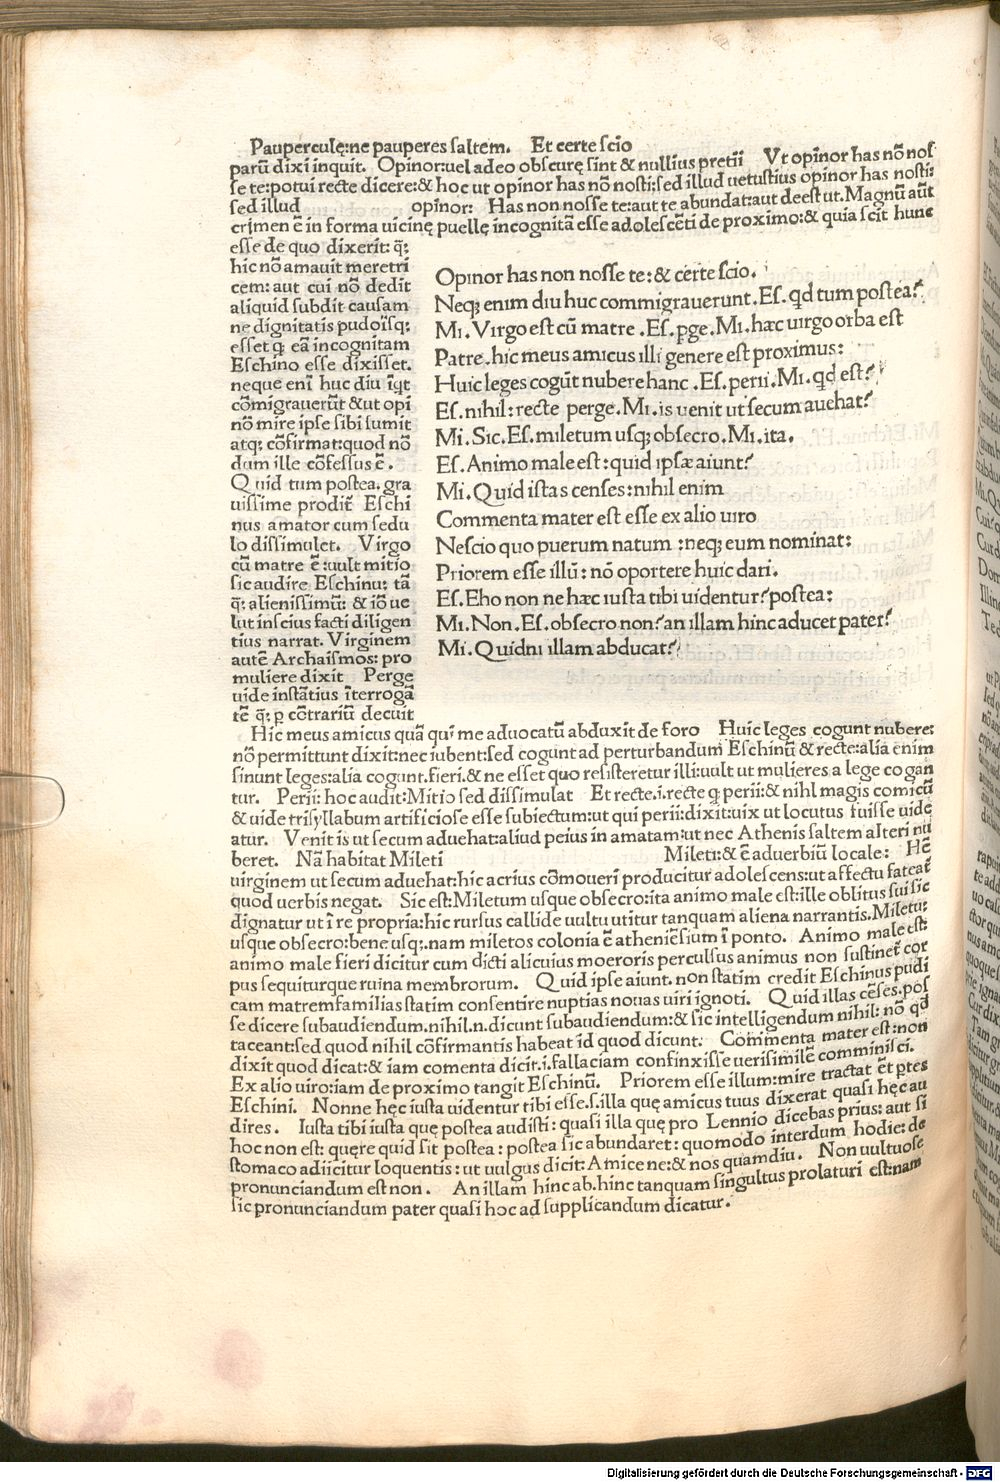 Pauperculę:ne pauperes saltem. Et certe scio
parũ dixi inquit. Opinor:uel adeo obscurę sint & nullius pretii Vt opinor has nõ nos
se te:potui recte dicere:& hoc ut opinor has nõ nosti:sed illud uetustius opinor has nosti:
sed illud opinor: Has non nosse te:aut te abundat:aut deest ut.Magnũ aũt
crimen ẽ in forma uicinę puellę incognitã esse adolescẽti de proximo:& quia scit hunc
esse de quo dixerit: q̃;
hic nõ amauit meretri
cem: aut cui nõ dedit
aliquid subdit causam
ne dignitatis pudoĩsq;
esset q̃ eã incognitam
Eschino esse dixisset.
neque enĩ huc diu ĩqt
cõmigrauerũt &ut opi
nõ mire ipse sibi sumit
atq; cõfirmat:quod nõ
dum ille cõfessus ẽ.
Quid tum postea. gra
uissime prodit̃ Eschi
nus amator cum sedu
lo dissimulet. Virgo
cũ matre ẽ:uult mitio
sic audire Eschinu: tã
q̃: alienissimũ: & iõ ue
lut inscius facti diligen
tius narrat. Virginem
autẽ Archaismos: pro
muliere dixit Perge
uide instãtius ĩterrogã
tẽ q̃; p cõtrariũ decuit
Opinor has non nosse te:& certe scio.
Neq; enim diu huc commigrauerunt.Es. qd tum postea?
Mi.Virgo est cũ matre .Es.pge.Mi.hæc uirgo orba est
Patre.hic meus amicus illi genere est proximus:
Huic leges cogũt nubere hanc .Es.perii.Mi.qd est?
Es.nihil:recte perge.Mi.is uenit ut secum auehat?
Mi.Sic.Es.miletum usq; obsecro.Mi.ita.
Es.Animo male est:quid ipsæ aiunt?
Mi.Quid istas censes:nihil enim
Commenta mater est esse ex alio uiro
Nescio quo puerum natum :neq; eum nominat:
Priorem esse illũ: nõ oportere huic dari.
Es.Eho non ne hæc iusta tibi uidentur?postea:
Mi.Non.Es.obsecro non?an illam hinc aducet pater?
Mi.Quidni illam abducat?
Hic meus amicus quã qui me aduocatũ abduxit de foro Huic leges cogunt nubere:
nõ permittunt dixit:nec iubent:sed cogunt ad perturbandum Eschinũ & recte:alia enim
sinunt leges:alia cogunt.fieri.& ne esset quo resisteretur illi:uult ut mulieres a lege cogan
tur. Perii: hoc audit:Mitio sed dissimulat Et recte.i.recte q perii:& nihl magis comicũ
& uide trisyllabum artificiose esse subiectum:ut qui perii:dixit:uix ut locutus fuisse uide
atur. Venit is ut secum aduehat:aliud peius in amatam:ut nec Athenis saltem alteri nu
beret. Nã habitat Mileti Mileti:& ẽ aduerbiũ locale: Hẽ
uirginem ut secum aduehat:hic acrius cõmoueri producitur adolescens:ut affectu fateat̃
quod uerbis negat. Sic est:Miletum usque obsecro:ita animo male est:ille oblitus sui sic
dignatur ut ĩ re propria:hic rursus callide uultu utitur tanquam aliena narrantis.Miletu:
usque obsecro:bene usq;.nam miletos colonia ẽ atheniẽsium ĩ ponto. Animo male est:
animo male fieri dicitur cum dicti alicuius moeroris perculsus animus non sustinet cor
pus sequiturque ruina membrorum. Quid ipse aiunt. non statim credit Eschinus pudi
cam matremfamilias statim consentire nuptias nouas uiri ignoti. Quid illas cẽses.pos
se dicere subaudiendum.nihil.n.dicunt subaudiendum:& sic intelligendum nihil: nõ qd
taceant:sed quod nihil cõfirmantis habeat id quod dicunt: Commenta mater est:non
dixit quod dicat:& iam comenta dicit.i.fallaciam confinxisse uerisimilẽ comminisci.
Ex alio uiro:iam de proximo tangit Eschinũ. Priorem esse illum:mire tractat et ptes
Eschini. Nonne hęc iusta uidentur tibi esse.s.illa quę amicus tuus dixerat quasi hęc au
dires. Iusta tibi iusta quę postea audisti: quasi illa quę pro Lennio dicebas prius: aut si
hoc non est: quęre quid sit postea : postea sic abundaret: quomodo interdum hodie: de
stomaco adiicitur loquentis : ut uulgus dicit: Amice ne:& nos quam diu. Non uultuose
pronunciandum est non. An illam hinc ab.hinc tanquam singultus prolaturi est:nam
sic pronunciandum pater quasi hoc ad supplicandum dicatur.
Digitalisierung gefördert durch die Deutsche Forschungsgemeinschaft - DFG